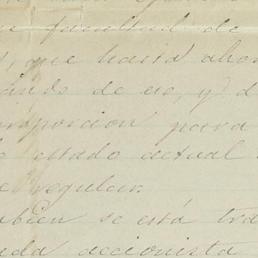 facultad de
que hasta ahor
ando de eso, y d
roporcion para
estado actual
e regular.
mbien se está tra
ada accionista